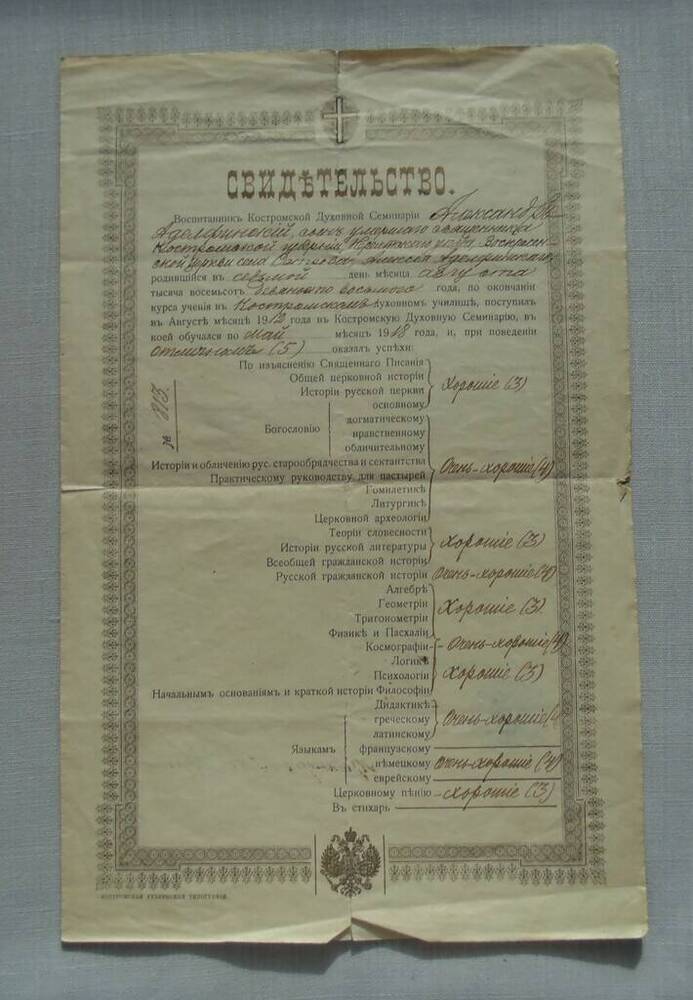 СВИДѢТЕЛЬСТВО.
Воспитанникъ Костромской Духовной Семинаріи Александръ
Аделфинскій, сынъ умершаго священника
Костромской губерніи уѣзда, Воскресен-
ской церкви села Алексѣя Аделфинскаго,
родившійся въ седьмой день мѣсяца августа
тысяча восемьсотъ девяносто восьмого года, по окончаніи
курса ученія въ Костромскомъ духовномъ училищѣ, поступилъ
въ Августѣ мѣсяцѣ 1912 года въ Костромскую Духовную Семинарію, въ
коей обучался по май мѣсяцъ 1918 года, и, при поведеніи
отличномъ (5) оказалъ успѣхи:
По изъясненію Священнаго Писанія
Общей церковной исторіи
Исторіи русской церкви
Хорошіе (3)
№ 213.
Богословію
основному
догматическому
нравственному
обличительному
Исторіи и обличенію рус. старообрядчества и сектантства
Очень-хорошіе (4)
Практическому руководству для пастырей
Гомилетикѣ
Литургикѣ
Церковной археологіи
Теоріи словесности
Исторіи русской литературы
Хорошіе (3)
Всеобщей гражданской исторіи
Русской гражданской исторіи Очень-хорошіе (4)
Алгебрѣ
Геометріи
Хорошіе (3)
Тригонометріи
Физикѣ и Пасхаліи
Космографіи - Очень-хорошіе (4)
Логикѣ
Психологіи
Хорошіе (3)
Начальнымъ основаніямъ и краткой исторіи Философіи
Дидактикѣ
Языкамъ
греческому
Очень-хорошіе (4)
латинскому
французскому
нѣмецкому Очень-хорошіе (4)
еврейскому
Церковному пѣнію - хорошіе (3)
Въ стихарь
КОСТРОМСКАЯ ГУБЕРНСКАЯ ТИПОГРАФІЯ.